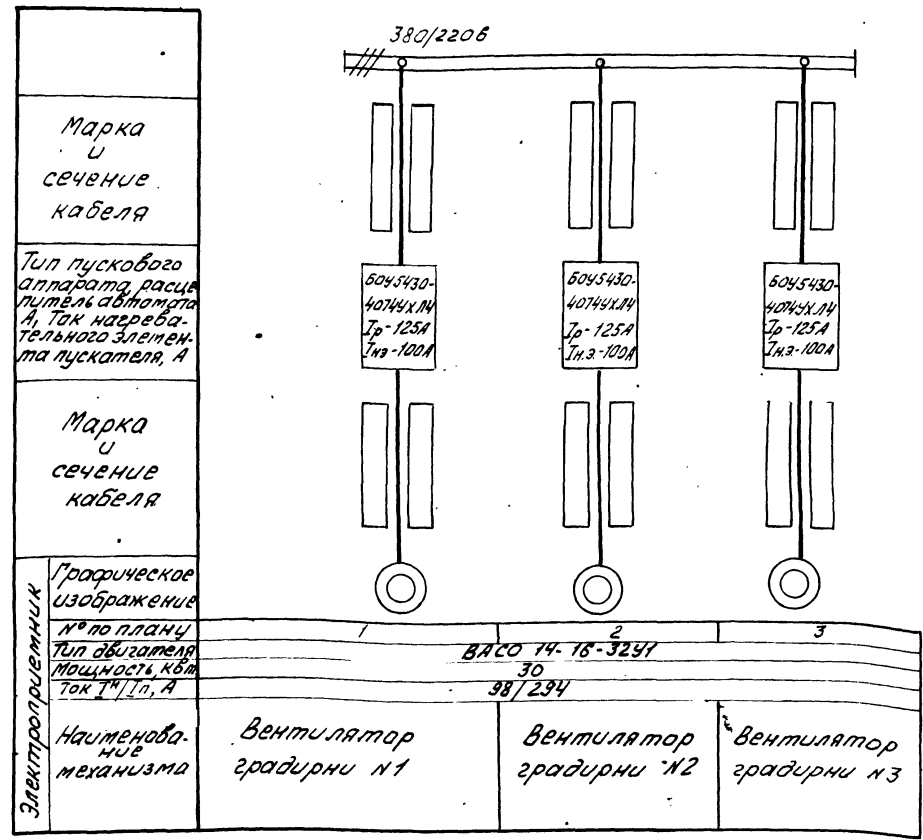 380/220в
Марка
и
сечение
кабеля
Тип пускового
аппарата, расце
питель автомата
А, Ток нагрева-
тельного элемен-
та пускателя, А
БОУ5430-
4074УХЛ4
Iр-125А
Iнэ-100А
БОУ5430-
4074УХЛ4
Iр-125А
Iн.э.-100А
БОУ5430-
4074УХЛ4
Iр-125А
Iн.э.-100А
Марка
и
сечение
кабеля
Электроприемник
Графическое
изображение
№ по плану
1 2 3
Тип двигателя
ВАСО 14-16-32У1
Мощность, квт
30
Ток Iн/Iп, А
98/294
Наименова-
ние
механизма
Вентилятор
градирни N1
Вентилятор
градирни N2
Вентилятор
градирни N3